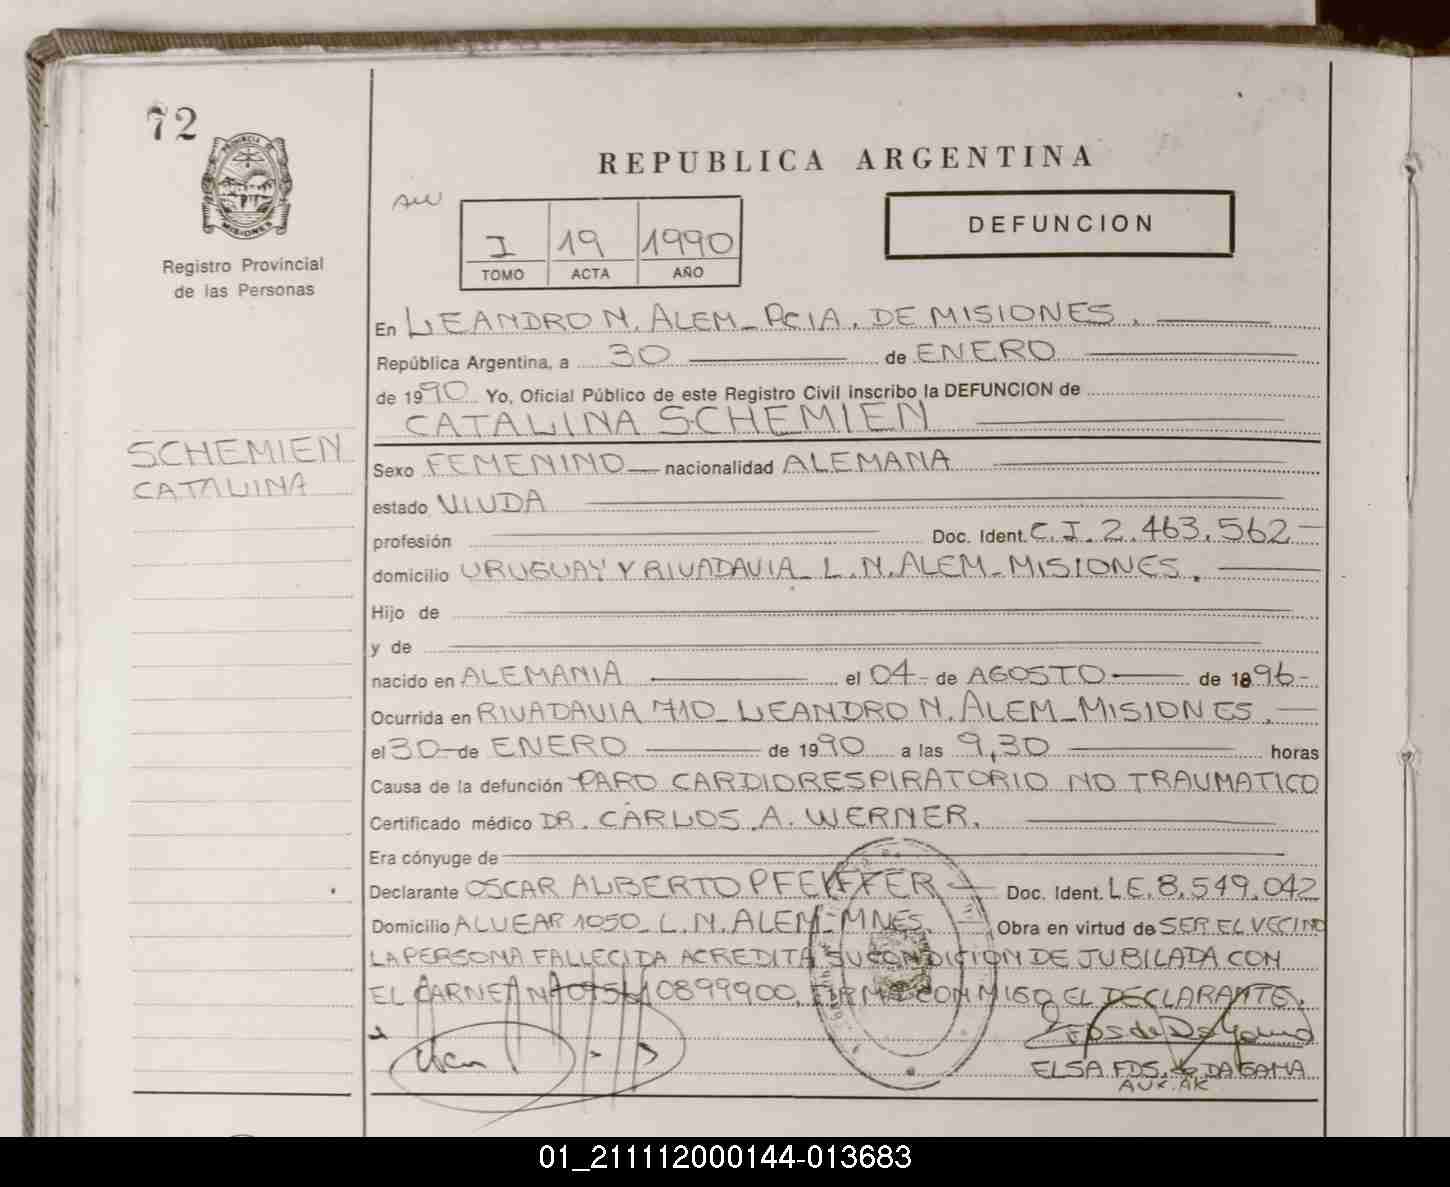 72
PROVINCIA DE
MISIONES
Registro Provincial
de las Personas
REPUBLICA ARGENTINA
I 19 1990
TOMO ACTA AÑO
DEFUNCION
En LEANDRO N. ALEM_ PCIA. DE MISIONES.
República Argentina, a 30 de ENERO
de 1990 Yo, Oficial Público de este Registro Civil inscribo la DEFUNCION de
CATALINA SCHEMIEN
SCHEMIEN
CATALINA
Sexo FEMENINO nacionalidad ALEMANA
estado VIUDA
profesión Doc. Ident. C.I. 2.463.562-
domicilio URUGUAY Y RIVADAVIA_ L.N. ALEM_MISIONES.
Hijo de
y de
nacido en ALEMANIA el 04- de AGOSTO de 1896-
Ocurrida en RIVADAVIA 710_LEANDRO N. ALEM_MISIONES.
el 30- de ENERO de 1990 a las 9,30 horas
Causa de la defunción PARO CARDIORESPIRATORIO NO TRAUMATICO
Certificado médico DR. CARLOS.A. WERNER.
Era cónyuge de
Declarante OSCAR ALBERTO PFEIFFER Doc. Ident. LE. 8.549.042
Domicilio ALVEAR 1050_ L.N. ALEM-MNES. Obra en virtud de SER EL VECINO
LA PERSONA FALLECIDA ACREDITA SU CONDICION DE JUBILADA CON
EL CARNET 10899900. FIRMA CONMIGO EL DECLARANTE.
ELSA FDS. DA GAMA
AUX.
01_211112000144-013683